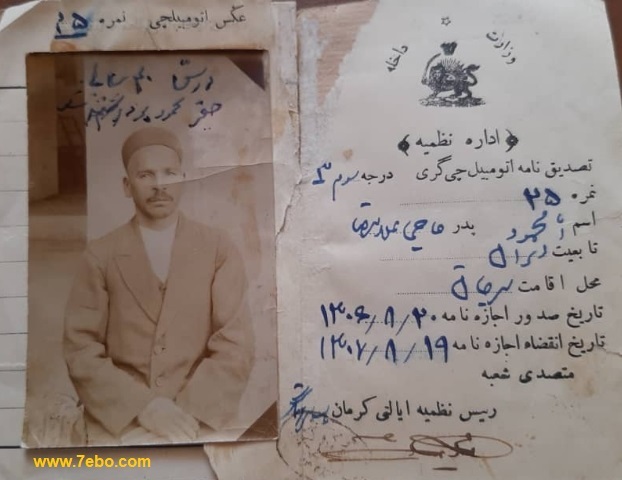 عکس اتومبیلچی نمره ۲۵
در سن ۴۰ سالگی
حقیر محمود
وزارت داخله
اداره نظمیه
تصدیق نامه اتومبیل چی گری درجه سوم ۳
نمره ۲۵
اسم محمود پدر حاجی علیرضا
تابعیت ایران
محل اقامت سیرجان
تاریخ صدور اجازه نامه ۱۳۰۶/۸/۲۰
تاریخ انقضاء اجازه نامه ۱۳۰۷/۸/۱۹
متصدی شعبه
رئیس نظمیه ایالتی کرمان
www.7ebo.com